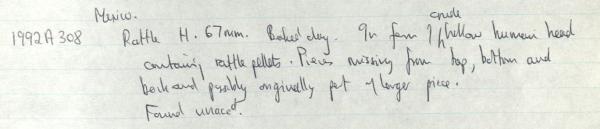 Mexico.
1992A308 Rattle H. 67mm. Baked clay. In form of crude hollow human head
containing rattle pellets. Pieces missing from top, bottom and
back and possibly originally part of larger piece.
Found unacc^d.